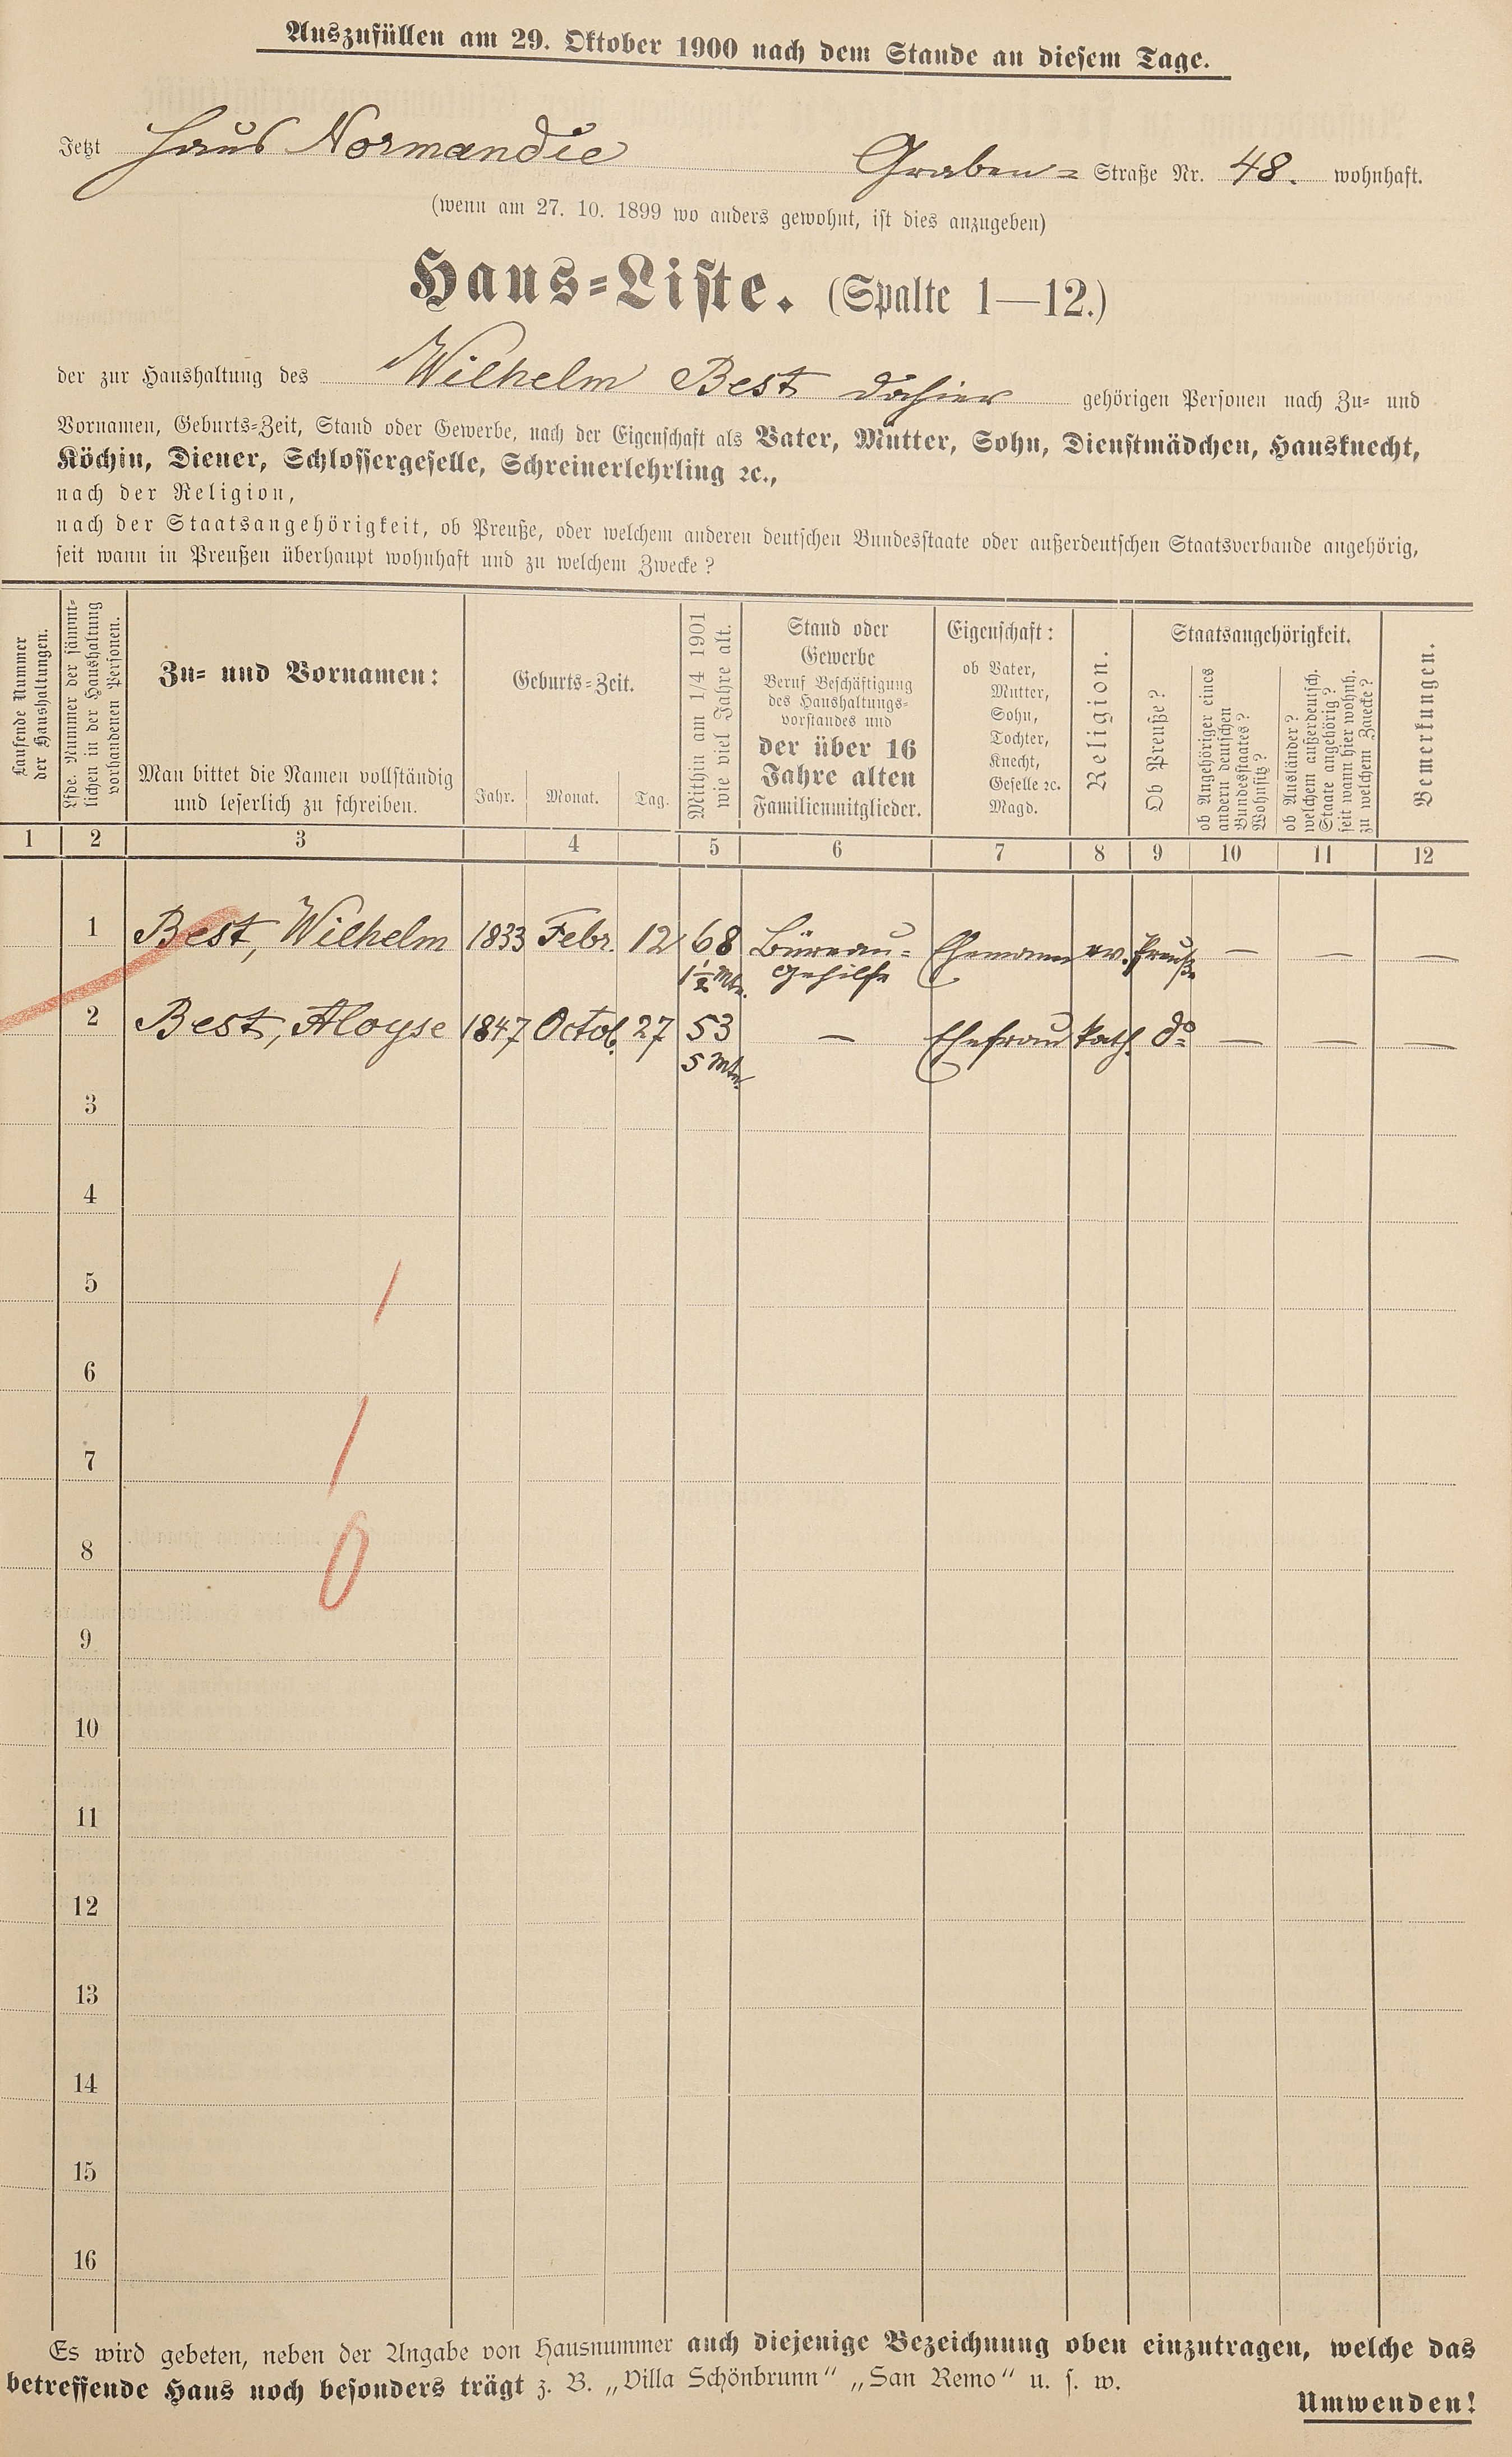 Auszufüllen am 29. Oktober 1900 nach dem Stande an diesem Tage.
Jetzt Haus Normandie Graben= Straße Nr. 48. wohnhaft.
(wenn am 27. 10. 1899 wo anders gewohnt, ist dies anzugeben)
Haus=Liste. (Spalte 1—12.)
der zur Haushaltung des Wilhelm Best dahier gehörigen Personen nach Zu= und
Vornamen, Geburts=Zeit, Stand oder Gewerbe, nach der Eigenschaft als Vater, Mutter, Sohn, Dienstmädchen, Hausknecht,
Köchin, Diener, Schlossergeselle, Schreinerlehrling ꝛc.,
nach der Religion,
nach der Staatsangehörigkeit, ob Preuße, oder welchem anderen deutschen Bundesstaate oder außerdeutschen Staatsverbande angehörig,
seit wann in Preußen überhaupt wohnhaft und zu welchem Zwecke?
Laufende Nummer
der Haushaltungen.
Lfde. Nummer der sämmt=
lichen in der Haushaltung
vorhandenen Personen.
Zu= und Vornamen:
Man bittet die Namen vollständig
und leserlich zu schreiben.
Geburts=Zeit.
Jahr. Monat. Tag.
Mithin am 1/4 1901
wie viel Jahre alt.
Stand oder
Gewerbe
Beruf Beschäftigung
des Haushaltungs=
vorstandes und
der über 16
Jahre alten
Familienmitglieder.
Eigenschaft:
ob Vater,
Mutter,
Sohn,
Tochter,
Knecht,
Geselle ꝛc.
Magd.
Religion.
Staatsangehörigkeit.
Ob Preuße?
ob Angehöriger eines
andern deutschen
Bundesstaates?
Wohnsitz?
ob Ausländer?
welchem außerdeutsch.
Staate angehörig?
seit wann hier wohnh.
zu welchem Zwecke?
Bemerkungen.
1 2 3 4 5 6 7 8 9 10 11 12
1 Best, Wilhelm 1833 Febr. 12 68 Büreau= Ehemann ev. Preuße — — —
1½ Mte. Gehilfe
2 Best, Aloyse 1847 Octob. 27 53 — Ehefrau kath. do — — —
5 Mte.
3
4
5
6
7
8
9
10
11
12
13
14
15
16
Es wird gebeten, neben der Angabe von Hausnummer auch diejenige Bezeichnung oben einzutragen, welche das
betreffende Haus noch besonders trägt z. B. „Villa Schönbrunn“ „San Remo“ u. s. w.
Umwenden!